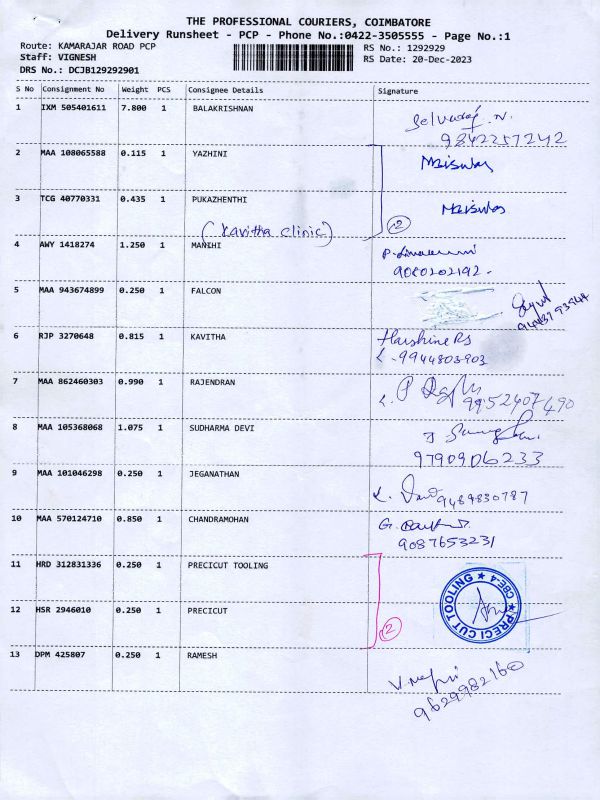 THE PROFESSIONAL COURIERS, COIMBATORE
Delivery Runsheet - PCP - Phone No.:0422-3505555 - Page No.:1
Route: KAMARAJAR ROAD PCP
RS No.: 1292929
Staff: VIGNESH
RS Date: 20-Dec-2023
DRS No.: DCJB129292901
S No Consignment No Weight PCS Consignee Details Signature
1 IXM 505401611 7.800 1 BALAKRISHNAN
9842257242
2 MAA 108065588 0.115 1 YAZHINI
3 TCG 40770331 0.435 1 PUKAZHENTHI
2
(Kavitha clinic)
4 AWY 1418274 1.250 1 MANIHI
9080202192-
5 MAA 943674899 0.250 1 FALCON
6 RJP 3270648 0.815 1 KAVITHA Harshine RS
9944803903
7 MAA 862460303 0.990 1 RAJENDRAN
9952607490
8 MAA 105368068 1.075 1 SUDHARMA DEVI
9790906233
9 MAA 101046298 0.250 1 JEGANATHAN
9489830787
10 MAA 570124710 0.850 1 CHANDRAMOHAN
9087653231
11 HRD 312831336 0.250 1 PRECICUT TOOLING
PRECI CUT TOOLING ★ CBE-4 ★
12 HSR 2946010 0.250 1 PRECICUT
2
13 DPM 425807 0.250 1 RAMESH
9629982160